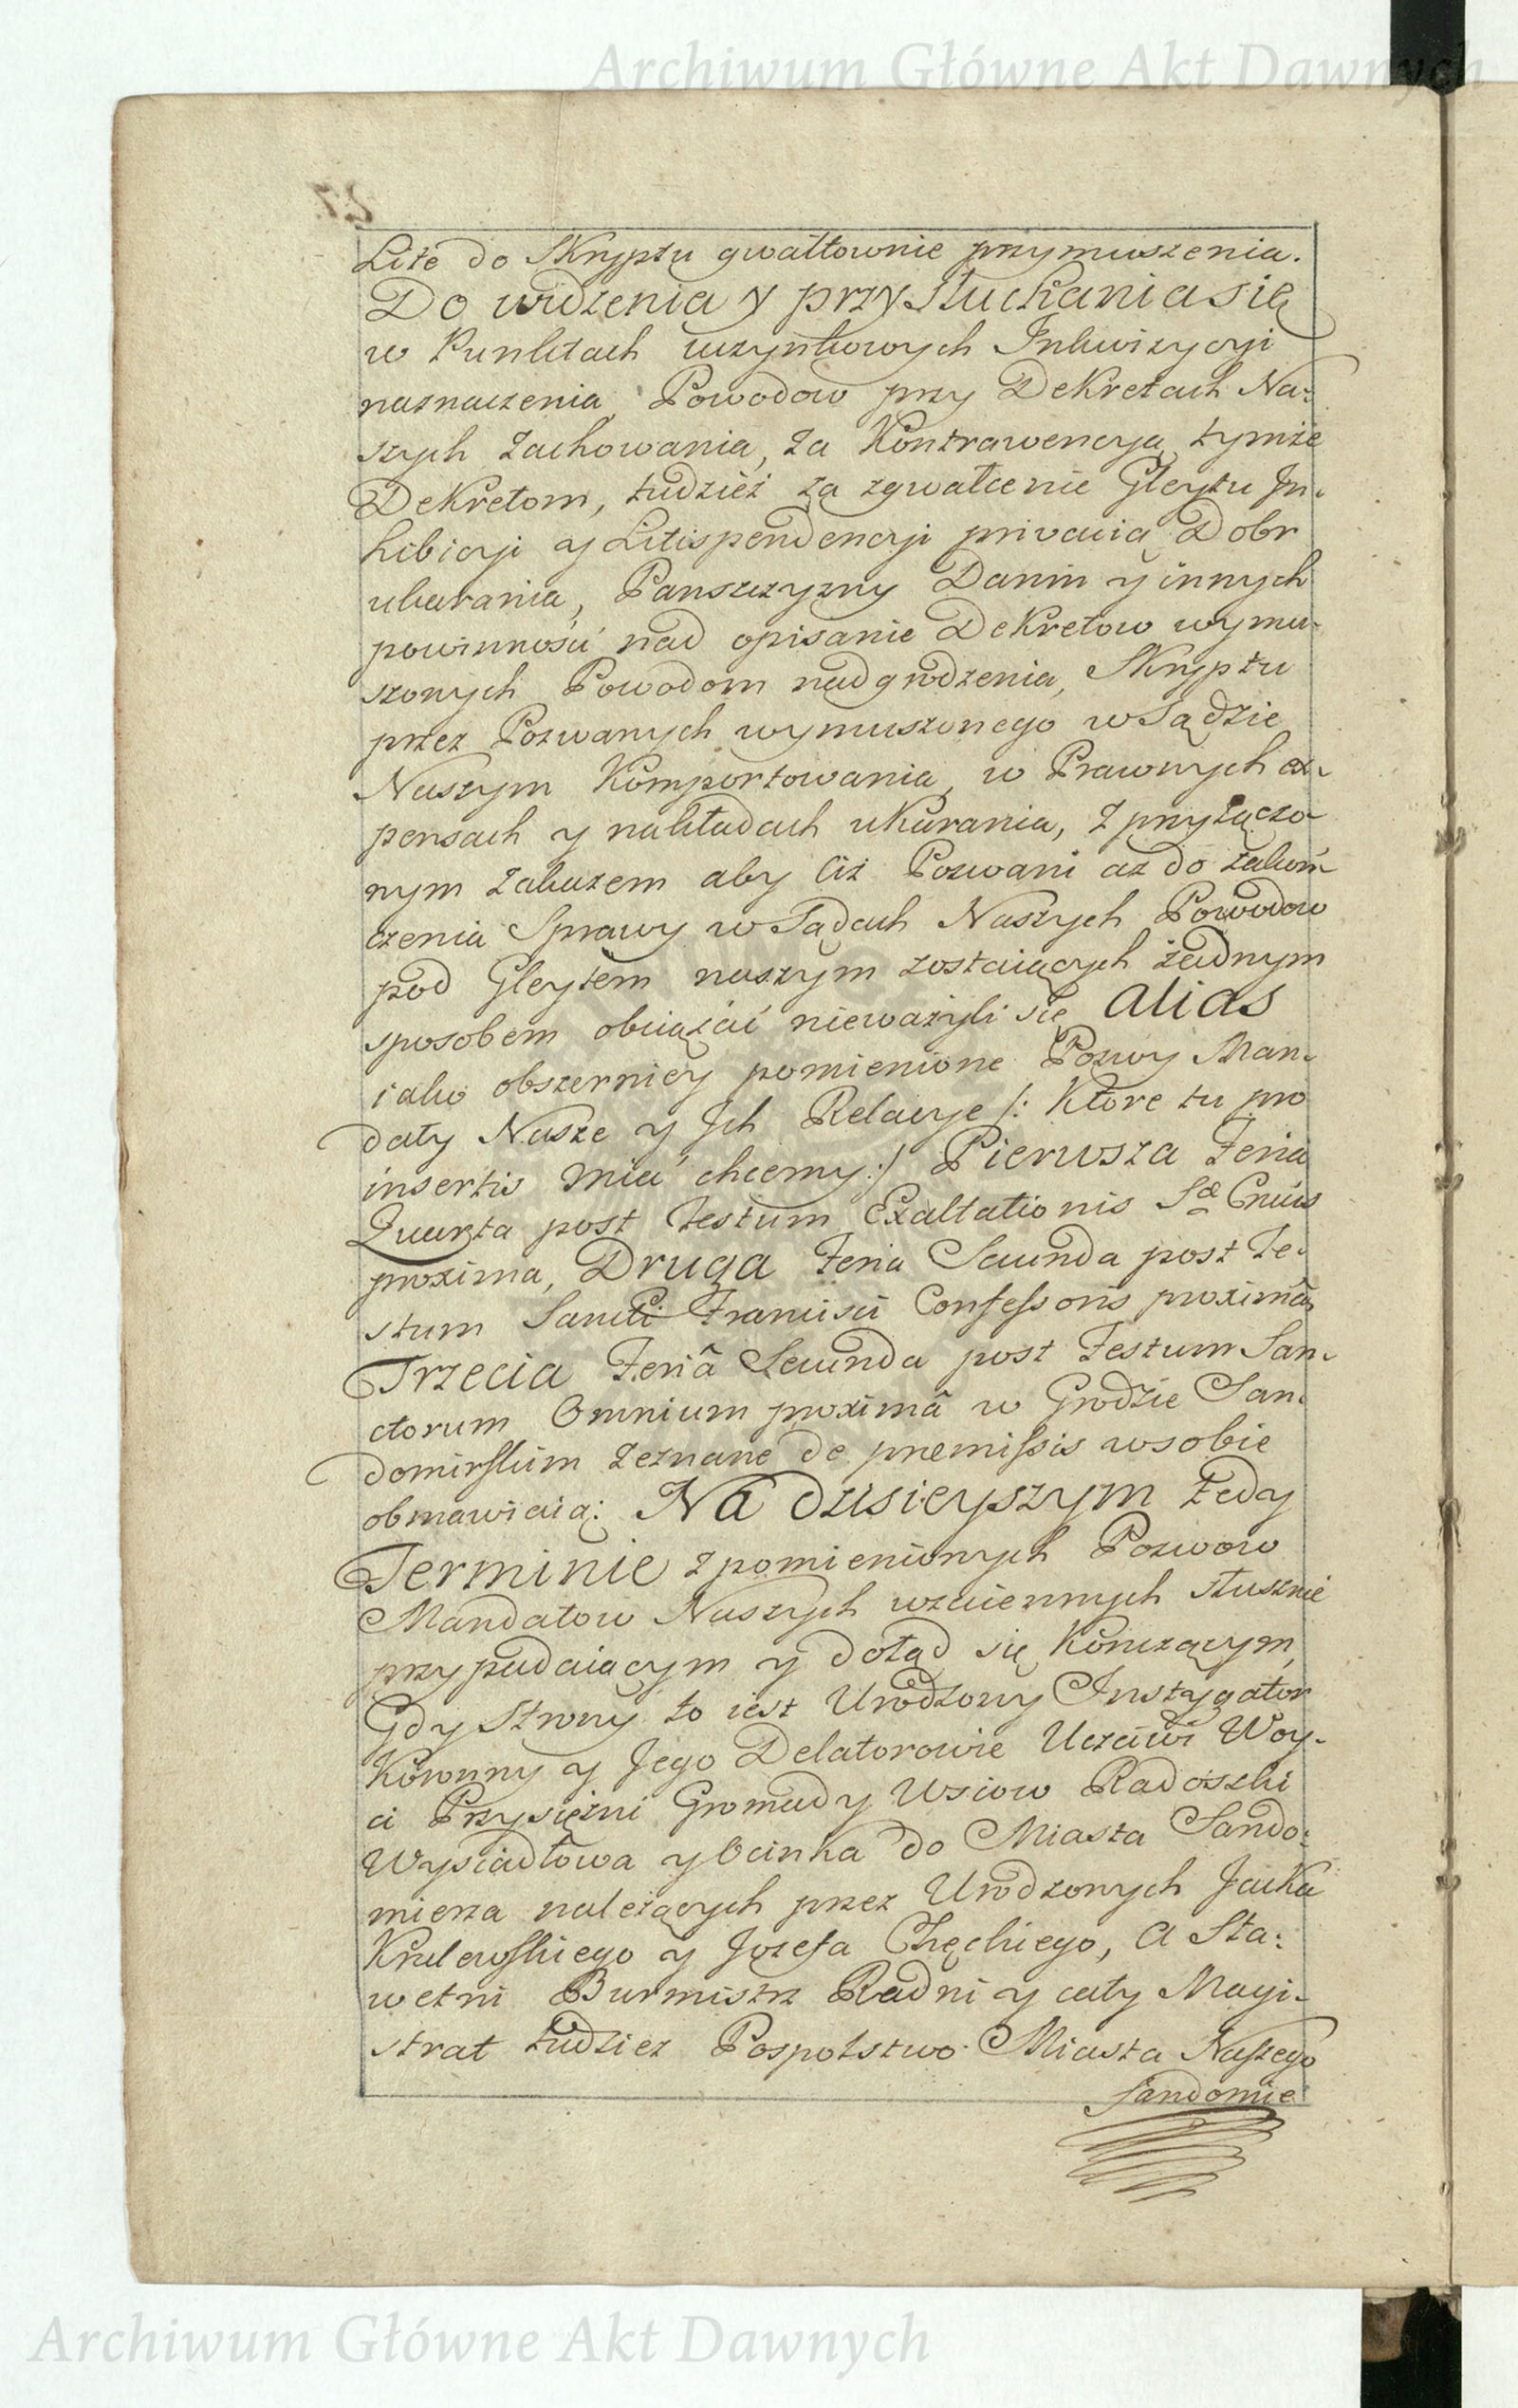 Archiwum Główne Akt Dawnych
Lite do Skryptu gwałtownie przymuszenia.
Do widzenia y przysłuchania się
w Punktach uczynkowych Inkwizycyi
naznaczenia, Powodow przy Dekretach Na:
szych Zachowania, Za Kontrawencyą tymże
Dekretom, tudzież za zgwałcenie Gleytu In-
hibicyi y Litispendencyi privacią Dobr
ukarania, Panszczyzny Danin y innych
powinności nad opisanie Dekretow wymu-
szonych Powodom nadgrodzenia, Skryptu
przez Pozwanych wymuszonego w Sądzie
Naszym Komportowania, w Prawnych ex-
pensach y nakładach ukarania, Z przyłączo-
nym Zakazem aby Ciż Pozwani aż do zakoń-
czenia Sprawy w Sądach Naszych Powodow
pod Gleytem naszym zostaiących żadnym
sposobem obciążać nieważyli się alias
iako obszerniey pomienione Pozwy Man-
daty Nasze y Ich Relacye /: Ktore tu pro
insertis mieć chcemy :/ Pierwsza Feria
Quarta post Festum Exaltationis Sæ Crucis
proxima, Druga Feria Secunda post Fe-
stum Sancti Francisci Confessoris proximâ,
Trzecia Feriâ Secunda post Festum San-
ctorum Omnium proximâ w Grodzie San-
domirskim Zeznane de premissis w sobie
obmawiaią: Na dzisieyszym tedy
Terminie z pomienionych Pozwow
Mandatow Naszych wzaiemnych słusznie
przypadaiącym y dotąd się Kończącym,
Gdy Strony to iest Urodzony Instygator
Koronny y Jego Delatorowie Uczciwi Woy-
ci Przysiężni Gromady Wsiow Radoszki
Wysiadłowa y Ocinka do Miasta Sando:
mierza należących przez Urodzonych Jacka
Krulewskiego y Jozefa Chęckiego, A Sła:
wetni Burmistrz Radni y cały Magi-
strat tudziez Pospolstwo Miasta Naszego
Sandomie
Archiwum Główne Akt Dawnych